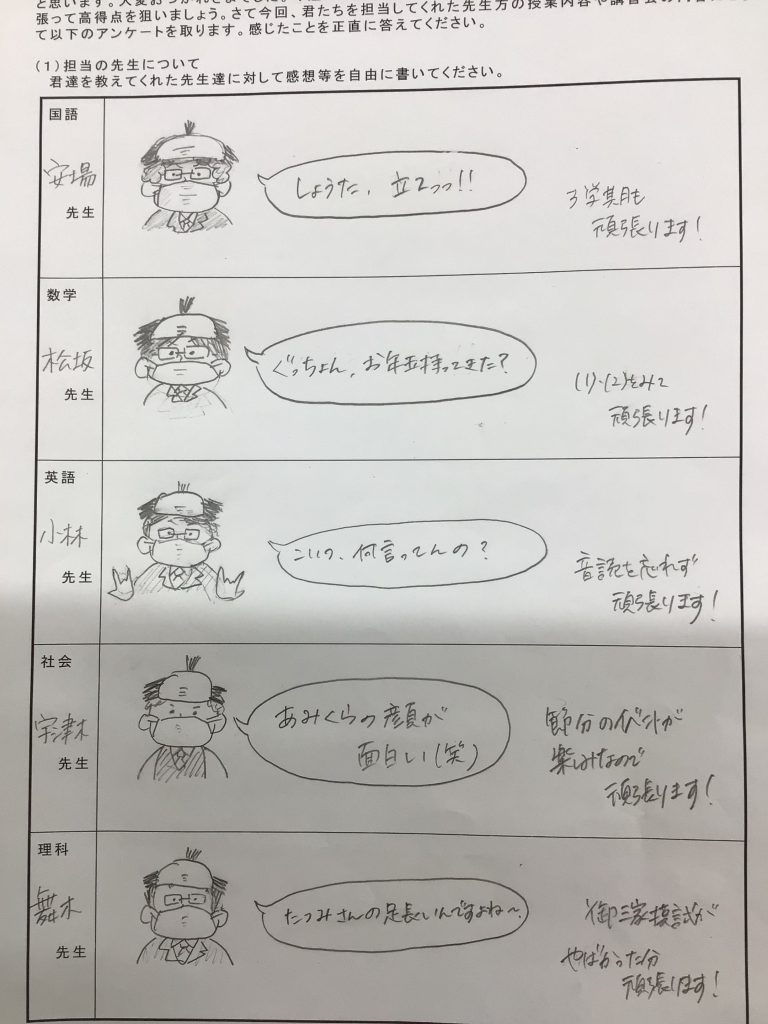 と思います。大変おつかれさまでした。
張って高得点を狙いましょう。さて今回、君たちを担当してくれた先生方の授業内容や講習会の
て以下のアンケートを取ります。感じたことを正直に答えてください。
(1)担当の先生について
君達を教えてくれた先生達に対して感想等を自由に書いてください。
国語
安場
先生
しょうた、立てっっ!!
3学期も
頑張ります!
数学
松坂
先生
ぐっちょん、お年玉持ってきた?
(1)・(2)をみて
頑張ります!
英語
小林
先生
こいつ、何言ってんの?
音読を忘れず
頑張ります!
社会
宇津木
先生
あみくらの顔が
面白い(笑)
節分のイベントが
楽しみなので
頑張ります!
理科
舞木
先生
たつみさんの足長いんですよね〜。
御三家模試が
やばかった分
頑張ります!